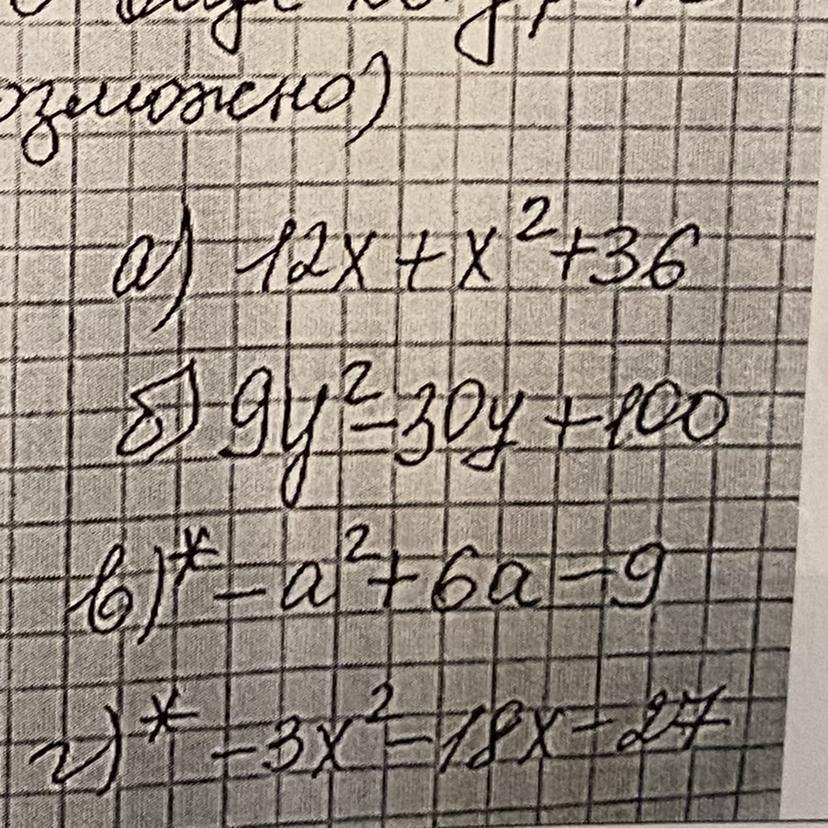 возможно)
а) 12x + x² + 36
б) 9y² - 30y + 100
в)* - a² + 6a - 9
г)* - 3x² - 18x - 27